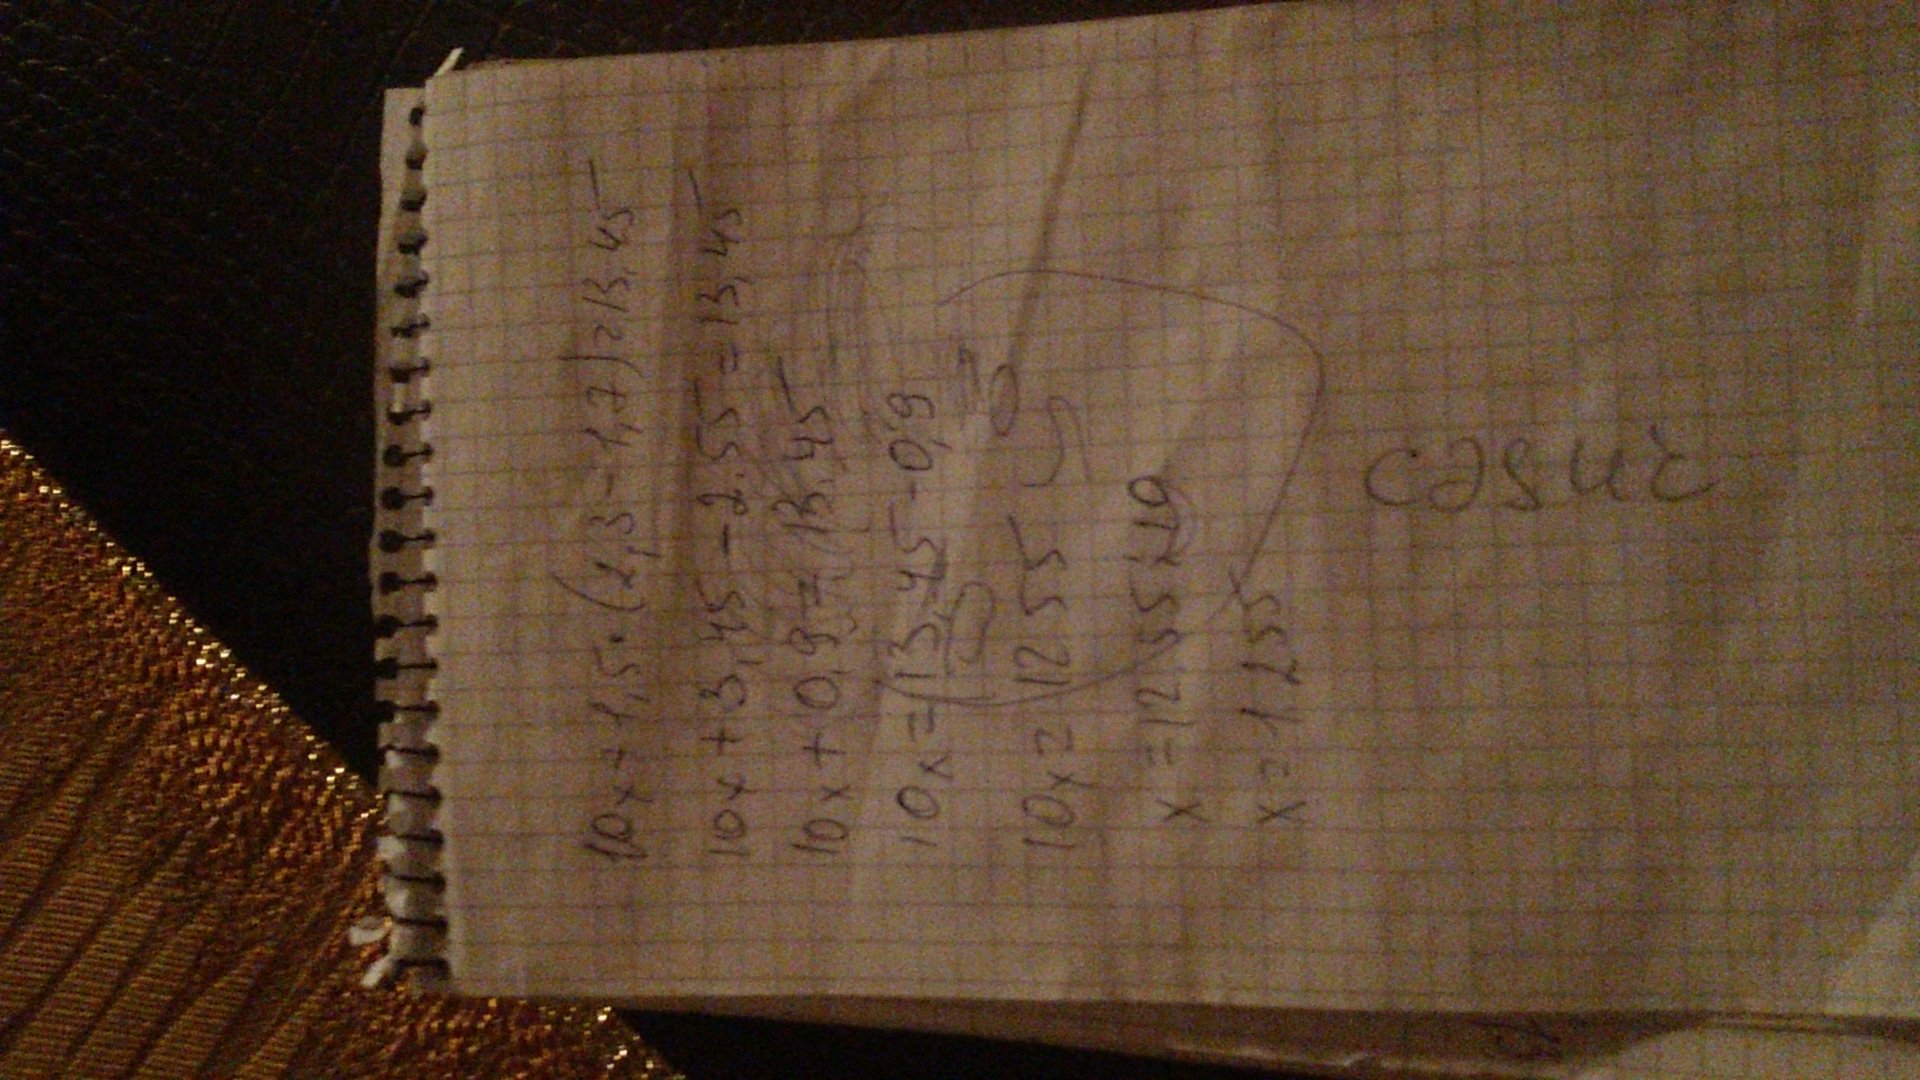 10x+1,5·(2,3-1,7)=13,45
10x+3,45-2,55=13,45
10x+0,9=13,45
10x=13,45-0,9
10x=1255
x=12,55:10
x=1,255